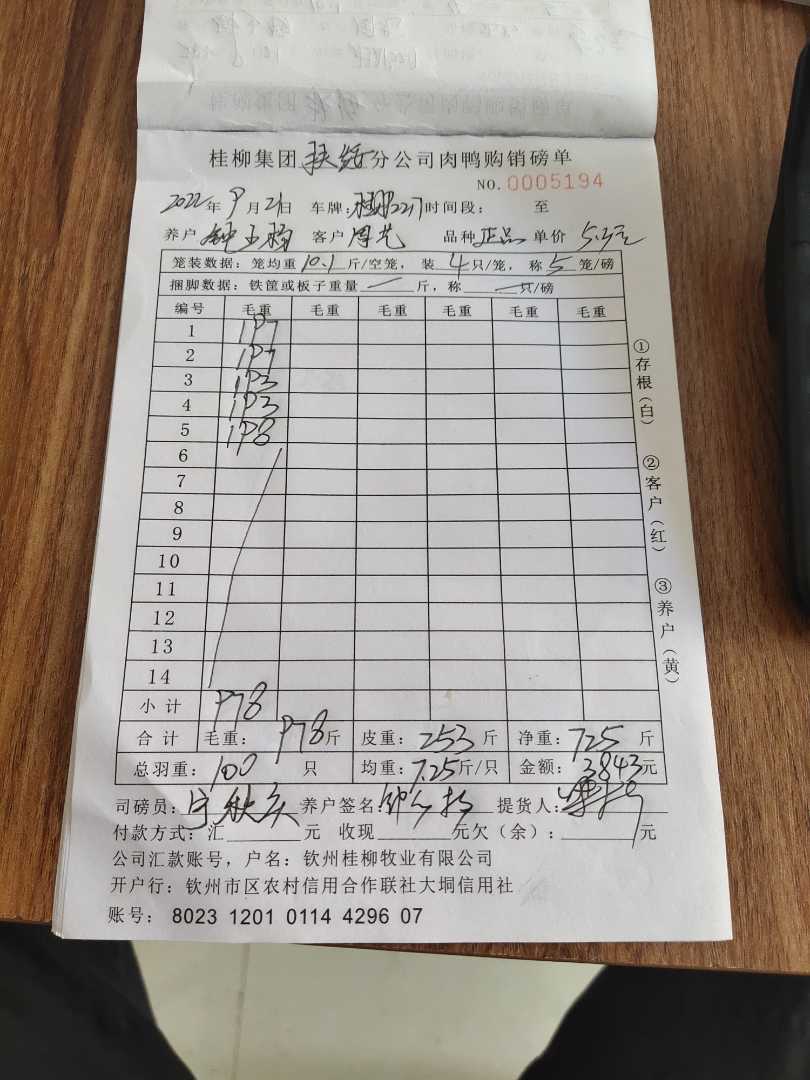 桂柳集团扶绥分公司肉鸭购销磅单
NO.0005194
2022年9月21日 车牌: 时间段: 至
养户 客户 品种正品 单价 5.3元
笼装数据: 笼均重10.1斤/空笼, 装4只/笼, 称5笼/磅
捆脚数据: 铁筐或板子重量 — 斤, 称 — 只/磅
编号 毛重 毛重 毛重 毛重 毛重 毛重
1 197
2 197
3 193
4 193
5 198
6
7
8
9
10
11
12
13
14
小计 978
合计 毛重: 978斤 皮重: 253斤 净重: 725斤
总羽重: 100只 均重: 7.25斤/只 金额: 3843元
司磅员: 养户签名: 提货人:
付款方式: 汇 元 收现 元欠(余): 元
公司汇款账号, 户名: 钦州桂柳牧业有限公司
开户行: 钦州市区农村信用合作联社大垌信用社
账号: 8023 1201 0114 4296 07
①存根(白)
②客户(红)
③养户(黄)